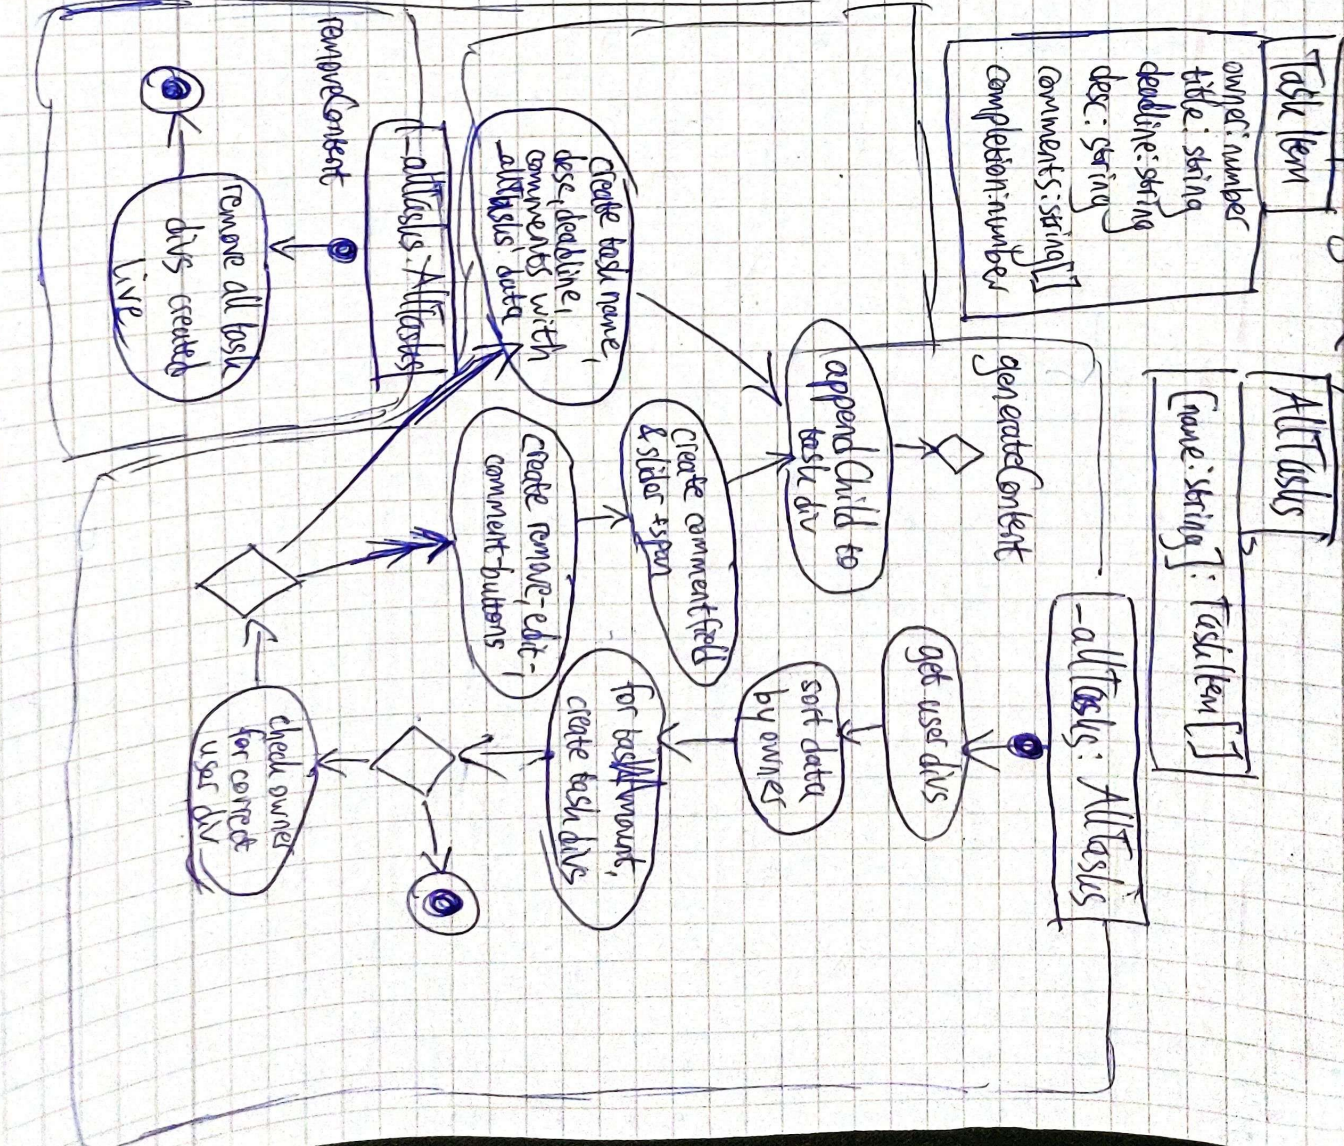 TaskItem
owner: number
title: string
deadline: string
desc: string
comments: string[]
completion: number
AllTasks
[name: string]: TaskItem[]
generateContent
_allTasks: AllTasks
get user divs
sort data
by owner
for taskAmount,
create task divs
check owner
for correct
user div
create remove-, edit-,
comment-buttons
create commentfield
& slider + span
create task name,
desc, deadline,
comments with
_allTasks' data
appendChild to
task div
removeContent
_allTasks: AllTasks
remove all task
divs created
live